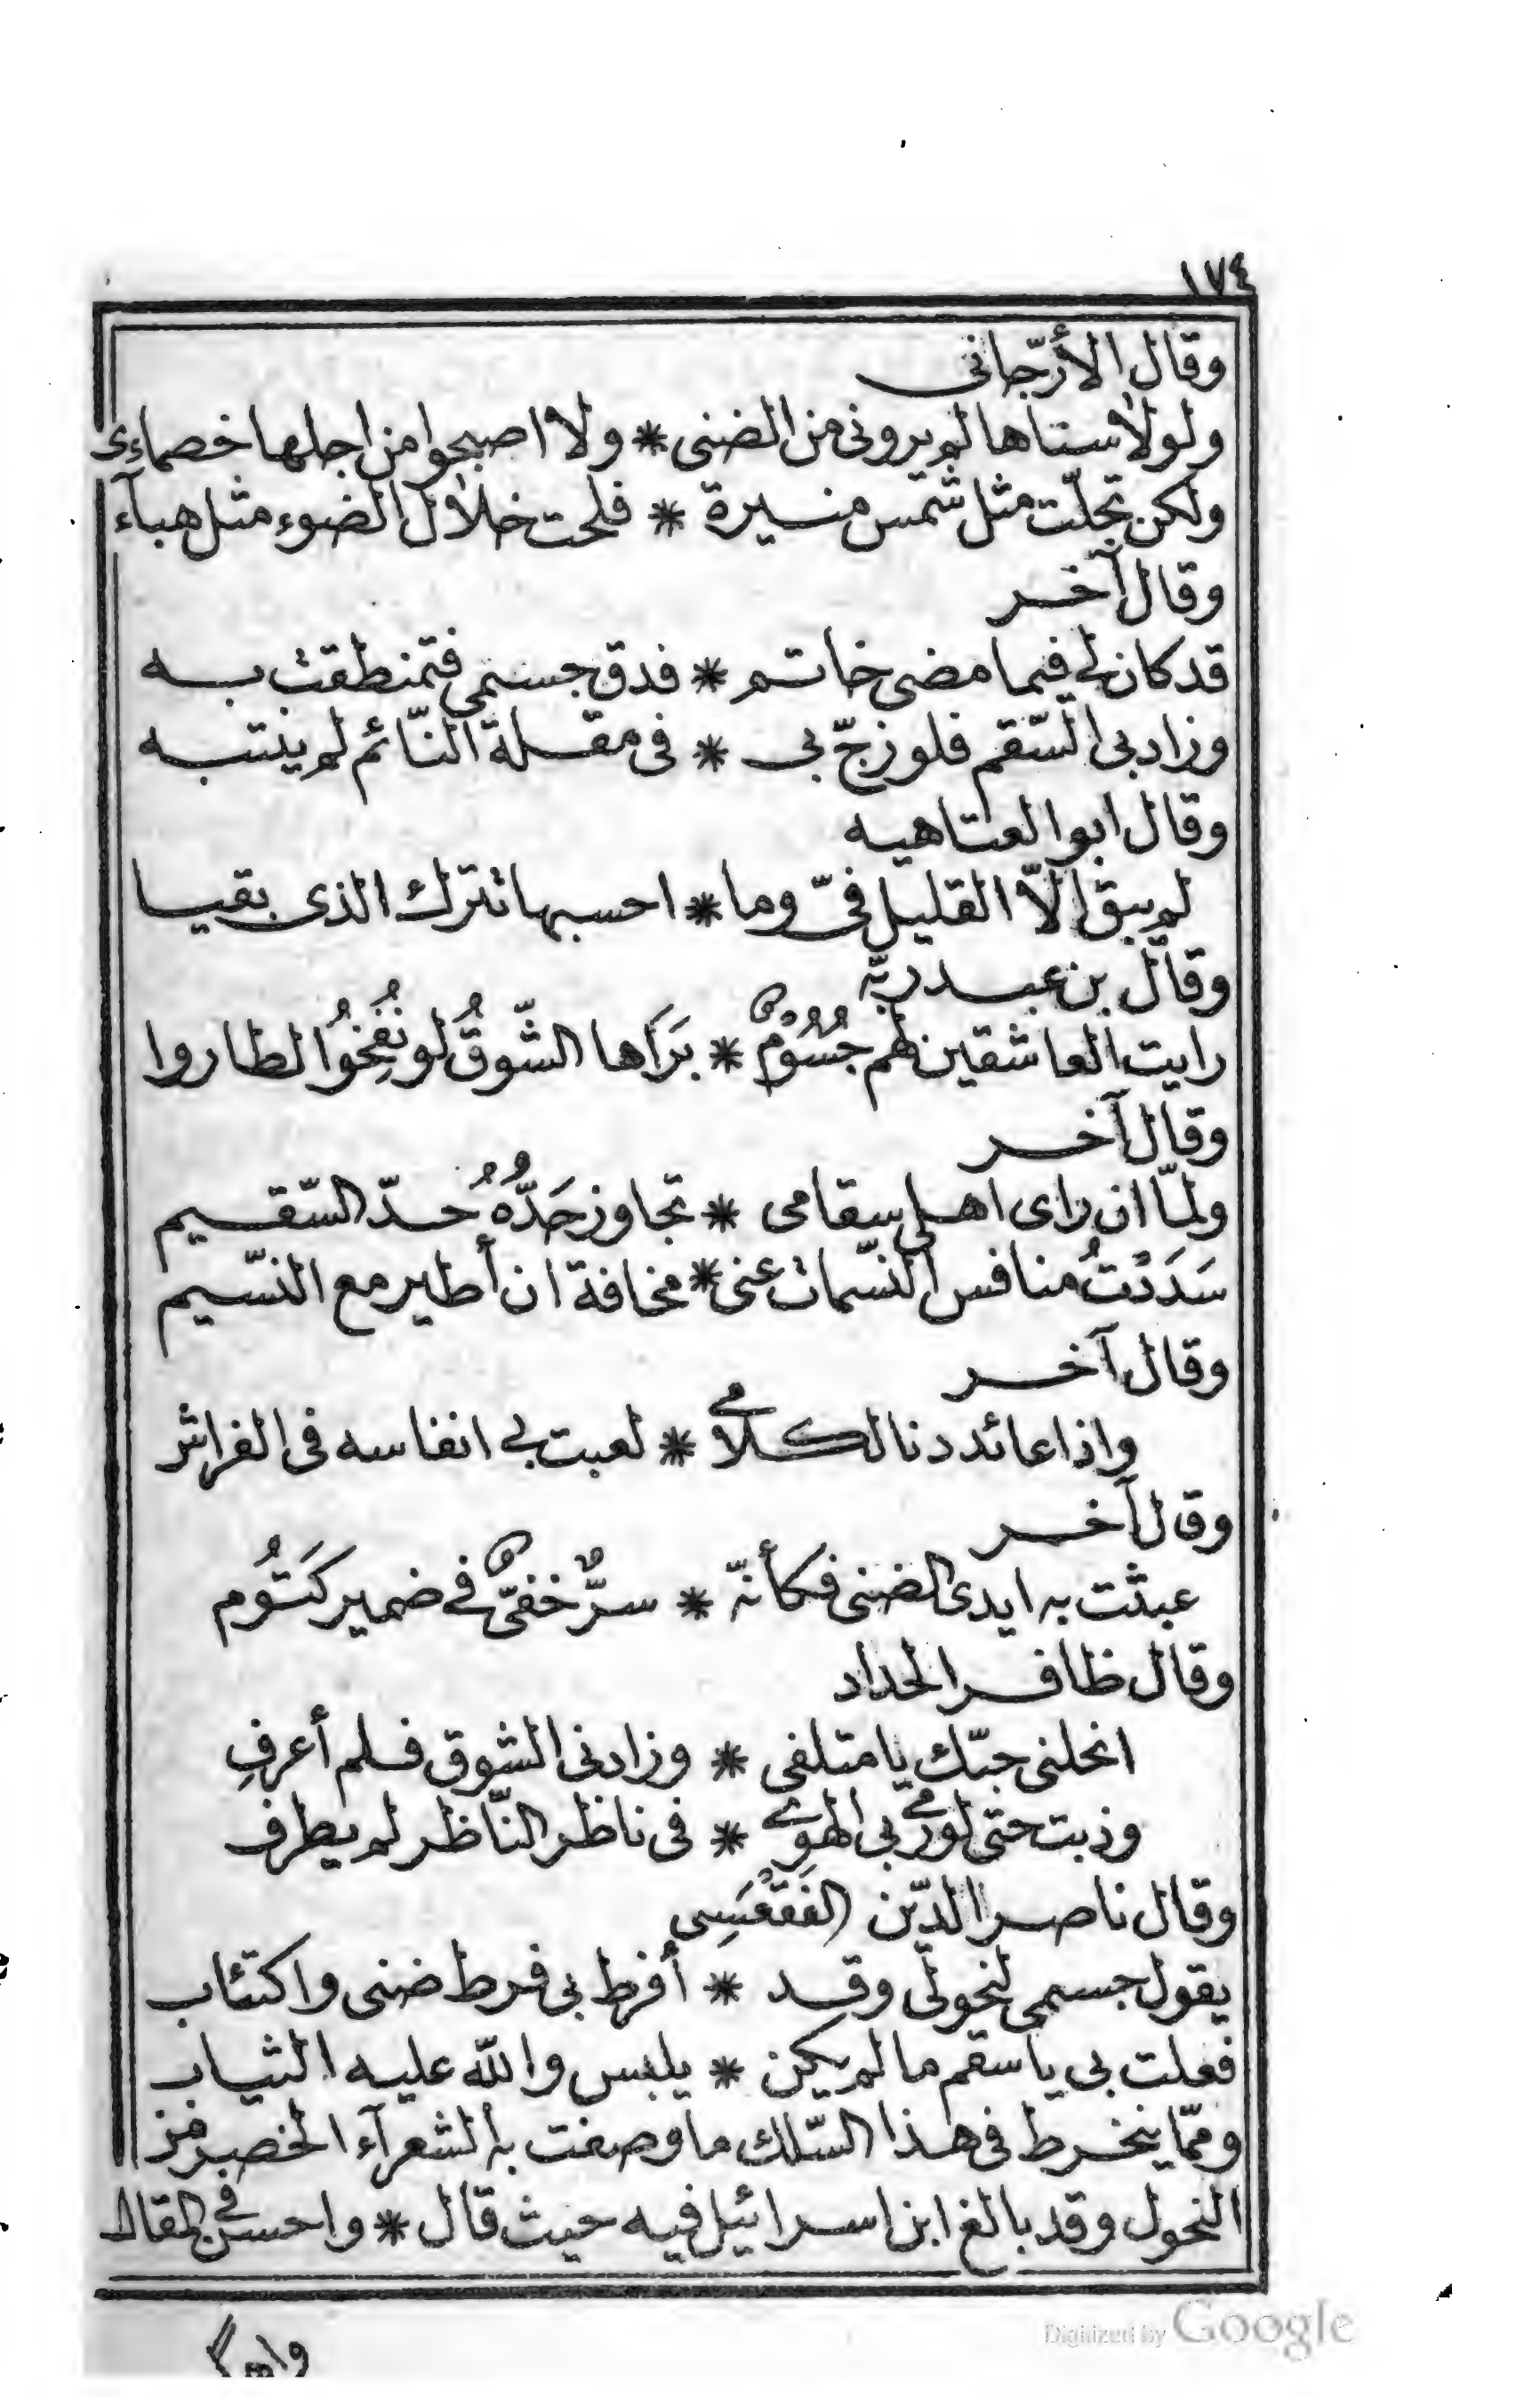 ١٧٤
وقال الأرّجانى
ولولا سناها لم يرونى من الضنى * ولا اصبحوا من اجلها خصماءى
ولكن تجلّت مثل شمس منيرة * فلحت خلال الضوء مثل هبآء
وقال آخر
قد كان لى فيما مضى خاتم * فدق جسمى فتمنطقت به
وزاد بى السّقم فلو زجّ بى * فى مقلة النّائم لم ينتبه
وقال ابو العتاهيه
لم يبق الّا القليل فىّ وما * احسبها تترك الذى بقيا
وقال بن عبد ربّه
رايت العاشقين لهم جُسُوْمٌ * بَرَاها الشّوقُ لو نُفِخُوا لطاروا
وقال آخر
ولمّا ان راى اهلى سقامى * تجاوز حَدُّهُ حدّ السّقيم
سَدَدْتُ منافس النّسمات عنى * مخافة ان أطير مع النّسيم
وقال آخر
واذا عائد دنا لكلامى * لعبت بى انفاسه فى الفراش
وقال آخر
عبثت به ايدى الضنى فكأنّه * سرٌّ خفىٌّ فى ضمير كَتُوُم
وقال ظافر الحداد
انحلنى حبّك يا متلفى * وزادنى الشوق فلم أعرفِ
وذبت حتى لو رمى بى الهوَى * فى ناظر النّاظر لم يطرف
وقال ناصر الدّين الفَقْعَسِى
يقول جسمى لنحولى وقد * أفرط بى فرط ضنى واكتئاب
فعلت بى يا سقم ما لم يكن * يلبس والله عليه الثياب
وممّا ينخرط فى هذا السّلك ما وصفت به الشعرآء الخصر من
النحول وقد بالغ ابن اسرائيل فيه حيث قال * واحسن فى المقال
Digitized by Google